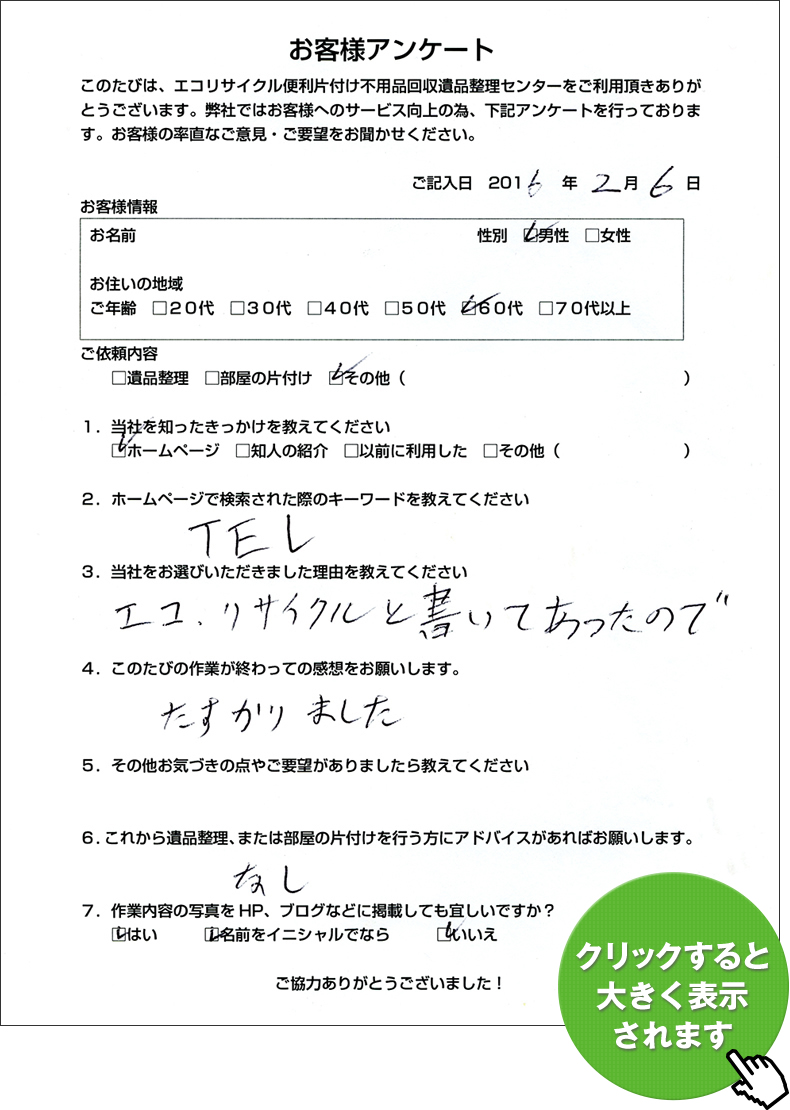 お客様アンケート
このたびは、エコリサイクル便利片付け不用品回収遺品整理センターをご利用頂きありが
とうございます。弊社ではお客様へのサービス向上の為、下記アンケートを行っておりま
す。お客様の率直なご意見・ご要望をお聞かせください。
ご記入日 2016 年 2月 6 日
お客様情報
お名前 性別 ☑男性 □女性
お住いの地域
ご年齢 □20代 □30代 □40代 □50代 ☑60代 □70代以上
ご依頼内容
□遺品整理 □部屋の片付け ☑その他( )
1. 当社を知ったきっかけを教えてください
☑ホームページ □知人の紹介 □以前に利用した □その他( )
2. ホームページで検索された際のキーワードを教えてください
TEL
3. 当社をお選びいただきました理由を教えてください
エコ.リサイクルと書いてあったので
4. このたびの作業が終わっての感想をお願いします。
たすかりました
5. その他お気づきの点やご要望がありましたら教えてください
6. これから遺品整理、または部屋の片付けを行う方にアドバイスがあればお願いします。
なし
7. 作業内容の写真をHP、ブログなどに掲載しても宜しいですか?
☑はい ☑名前をイニシャルでなら ☑いいえ
ご協力ありがとうございました!
クリックすると
大きく表示
されます